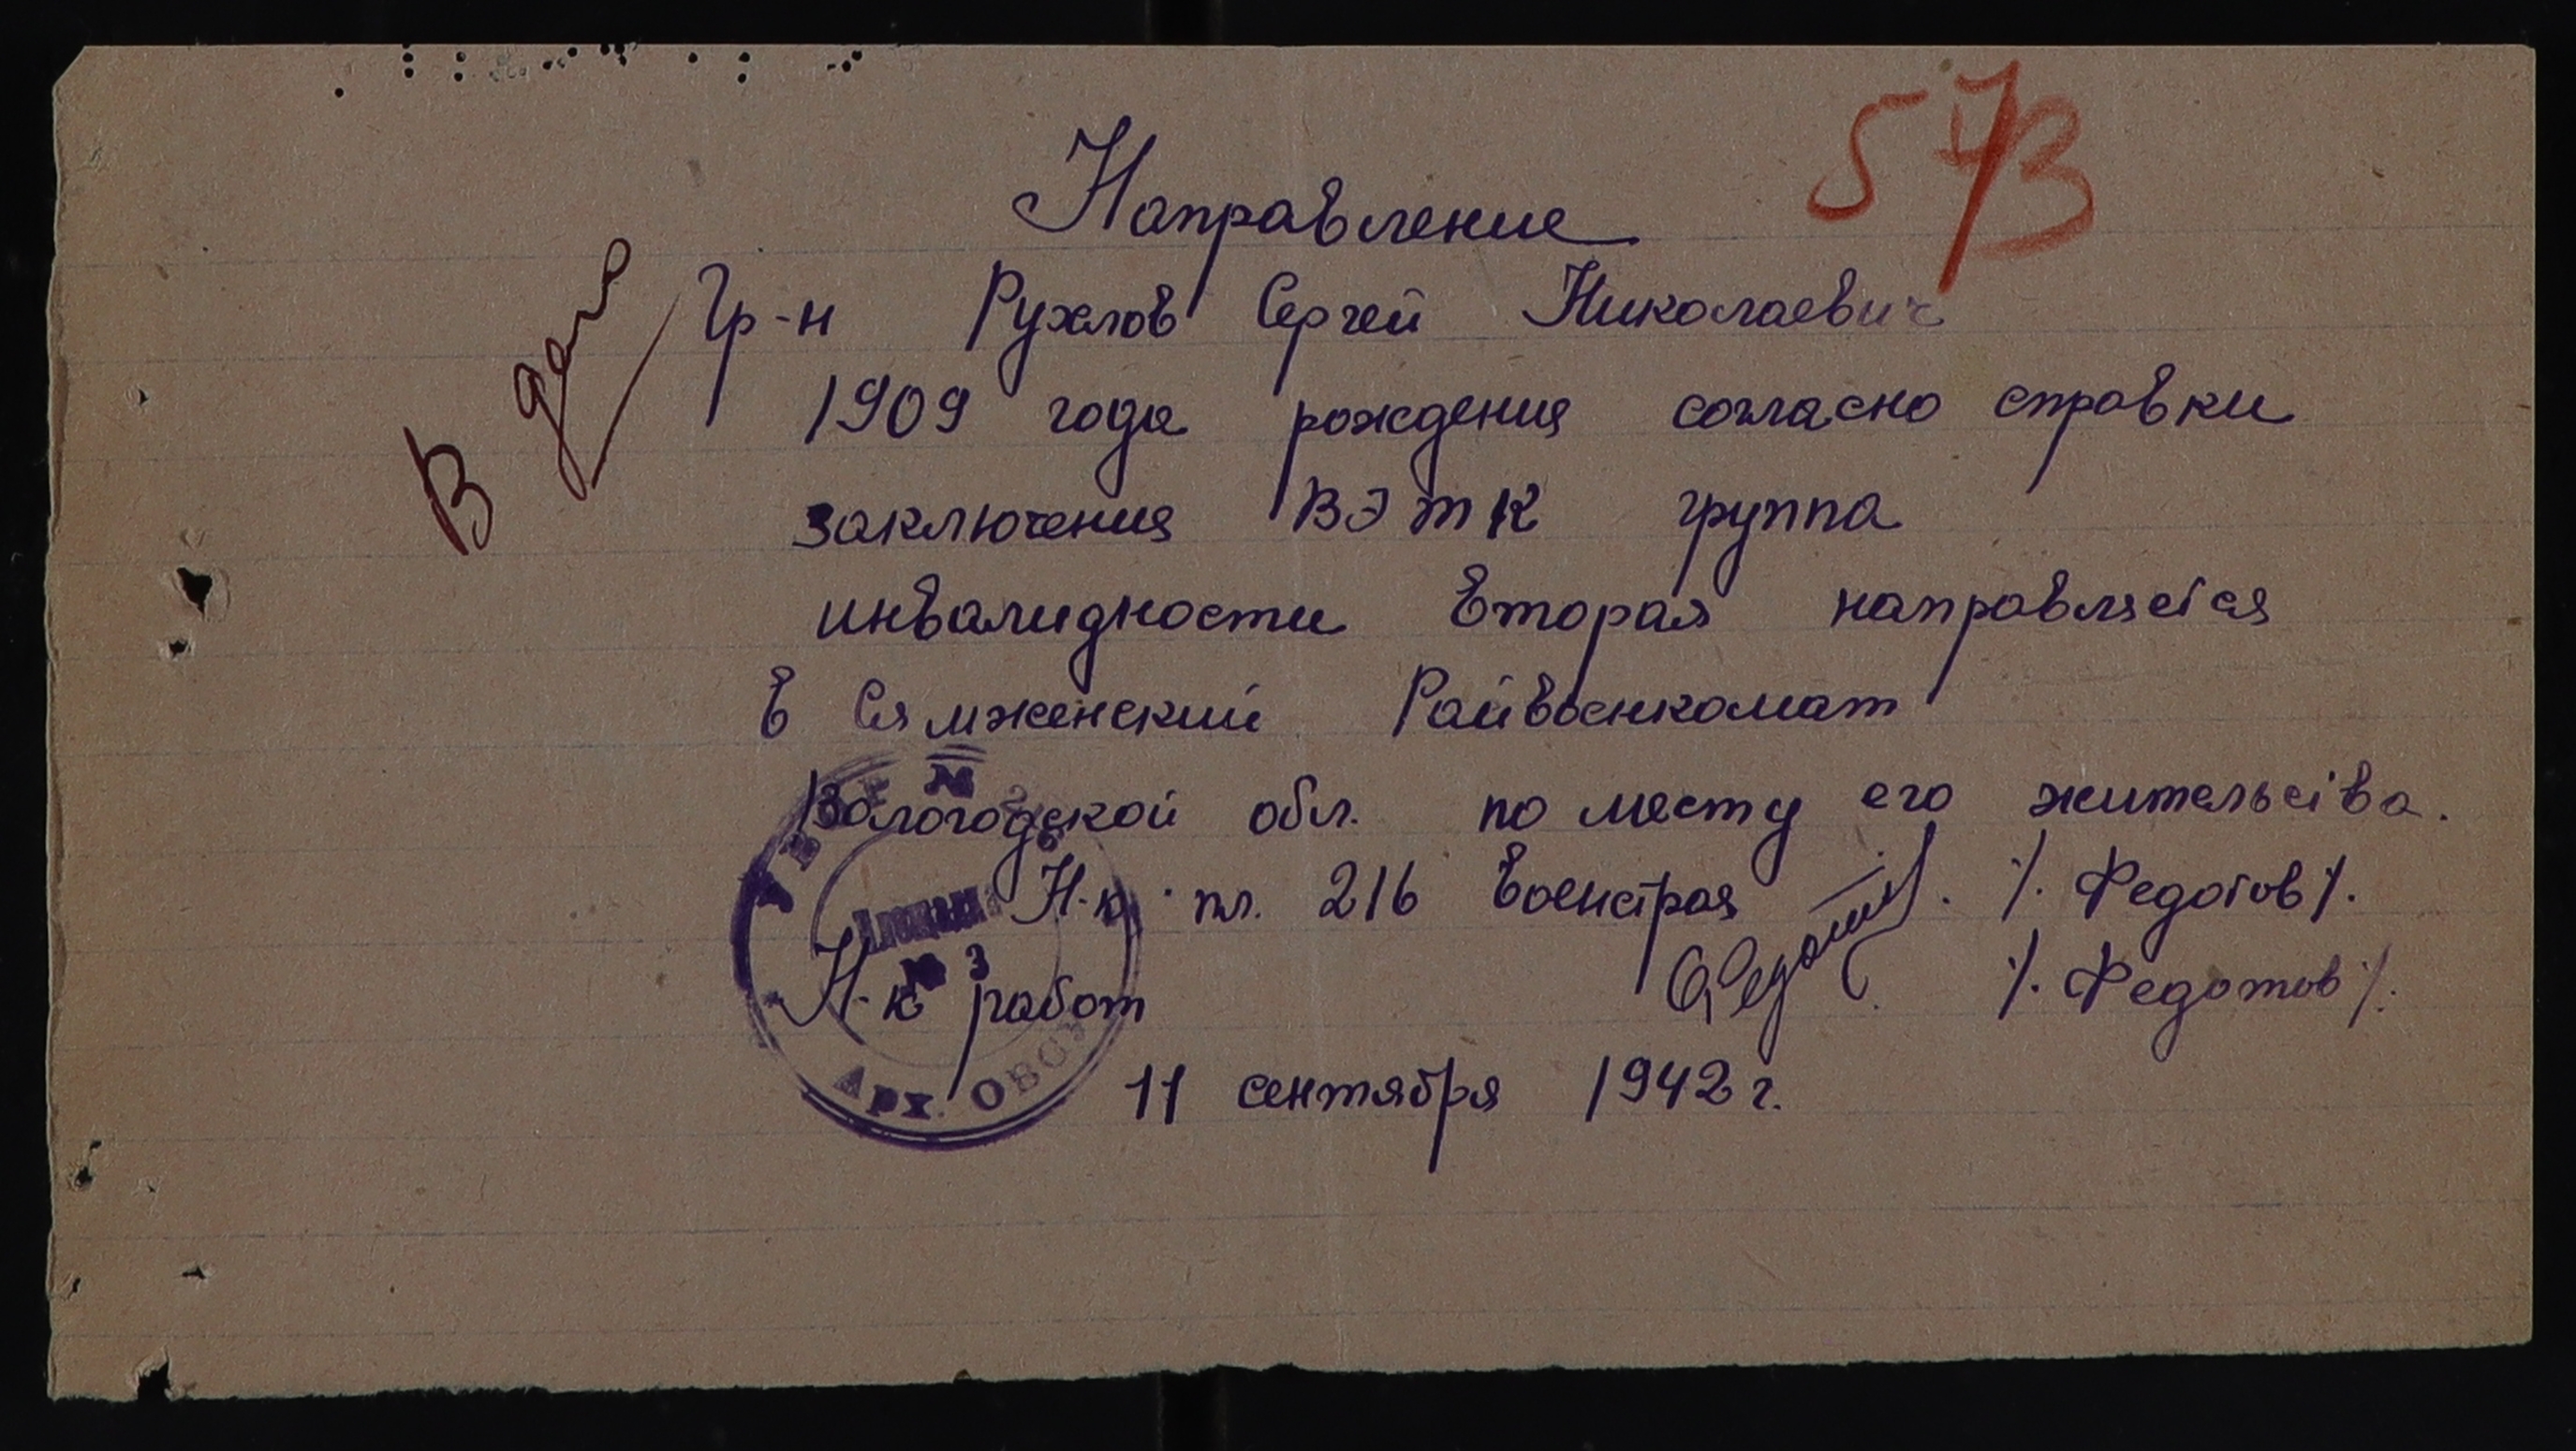 573
Направление
В дело
Гр-н Рухлов Сергей Николаевич
1909 года рождения согласно справки
заключения ВЭТК группа
инвалидности вторая направляется
в Сямженский Райвоенкомат
Вологодской обл. по месту его жительства.
Н-к пл. 216 военстроя ./. Федотов ./.
Н-к работ ./. Федотов ./.
11 сентября 1942 г.
Площадка
№ 3
Арх.